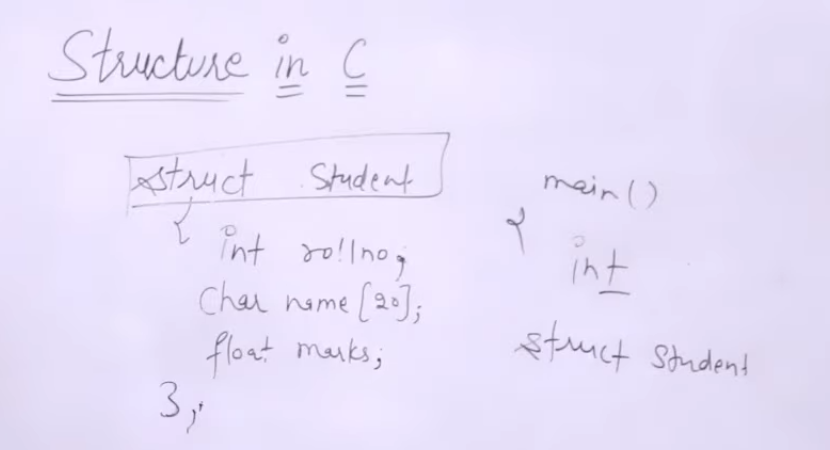 Structure in C
struct Student
{
int rollno;
char name [20];
float marks;
};
main()
{
int
struct Student